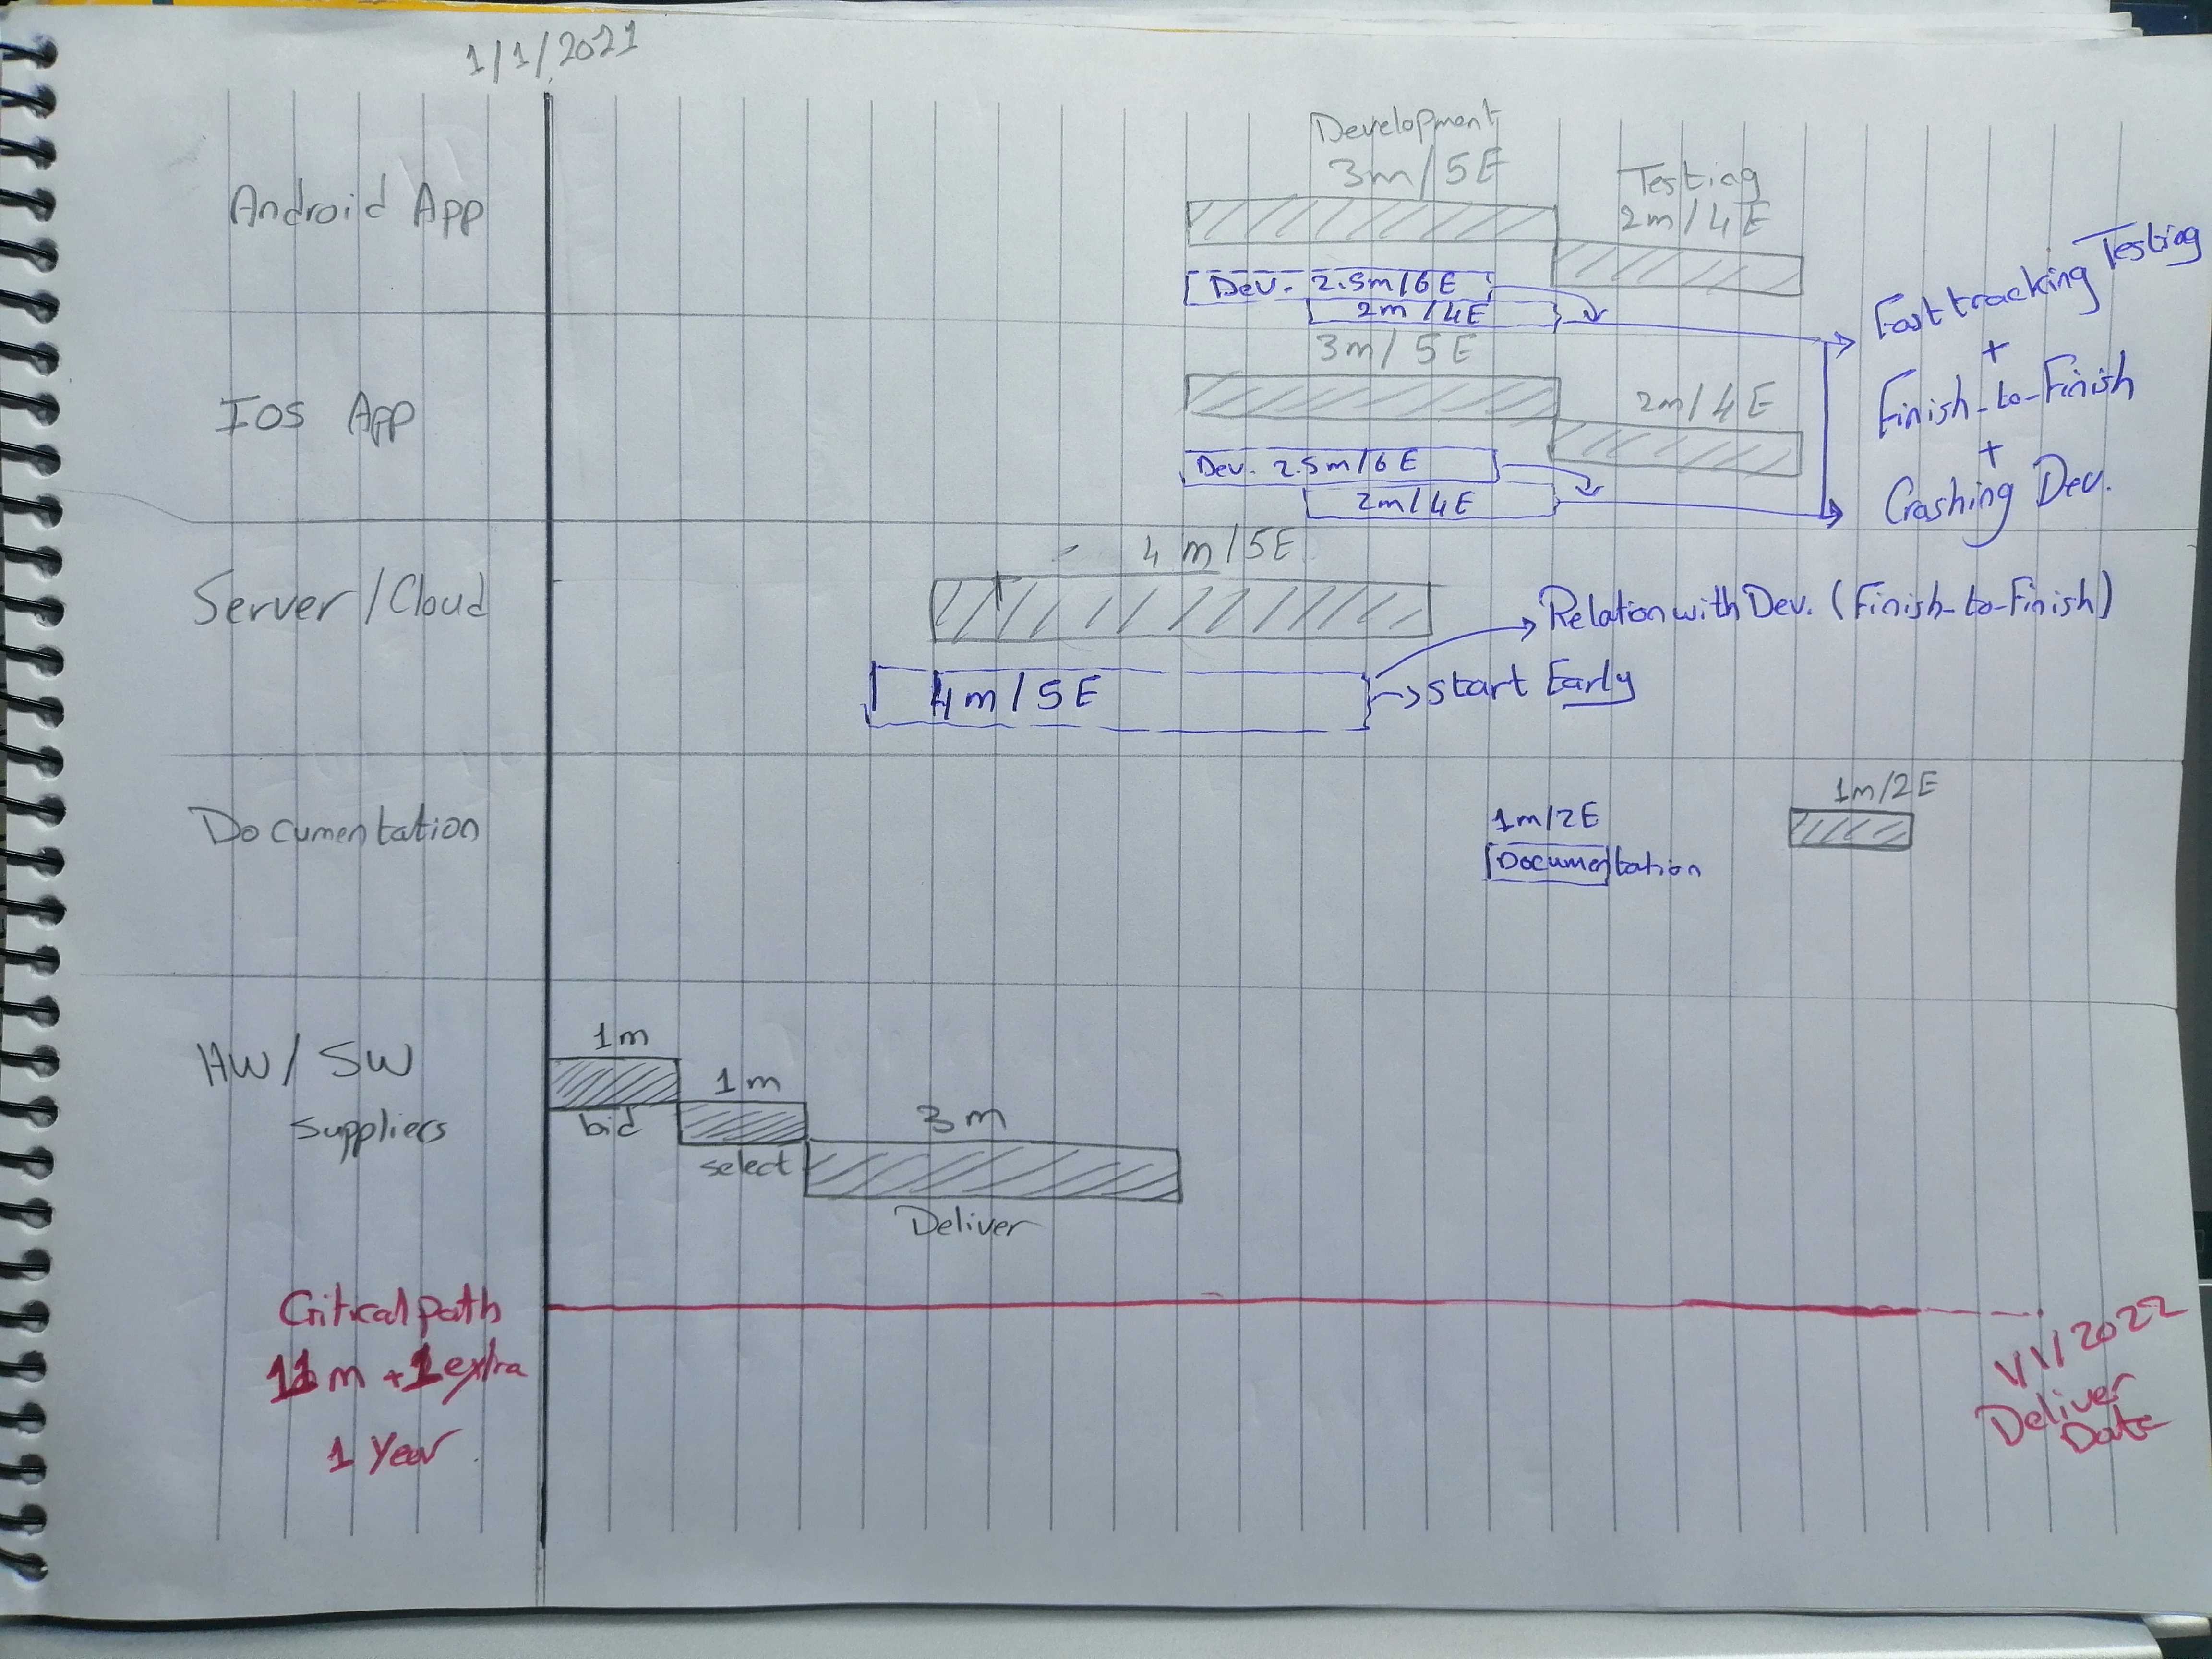 1/1/2021
Development
3m/5E
Testing
2m/4E
Android App
Dev. 2.5m/6E
2m/4E
Fast tracking Testing
+
Finish-to-Finish
+
Crashing Dev.
3m/5E
2m/4E
IOS App
Dev. 2.5m/6E
2m/4E
4m/5E
Server/Cloud
Relation with Dev. (Finish-to-Finish)
4m/5E
start Early
1m/2E
1m/2E
Documentation
Documentation
1m
HW/SW
suppliers
bid
1m
select
3m
Deliver
Critical path
11m + 1 extra
1 Year
1/1/2022
Deliver
Date